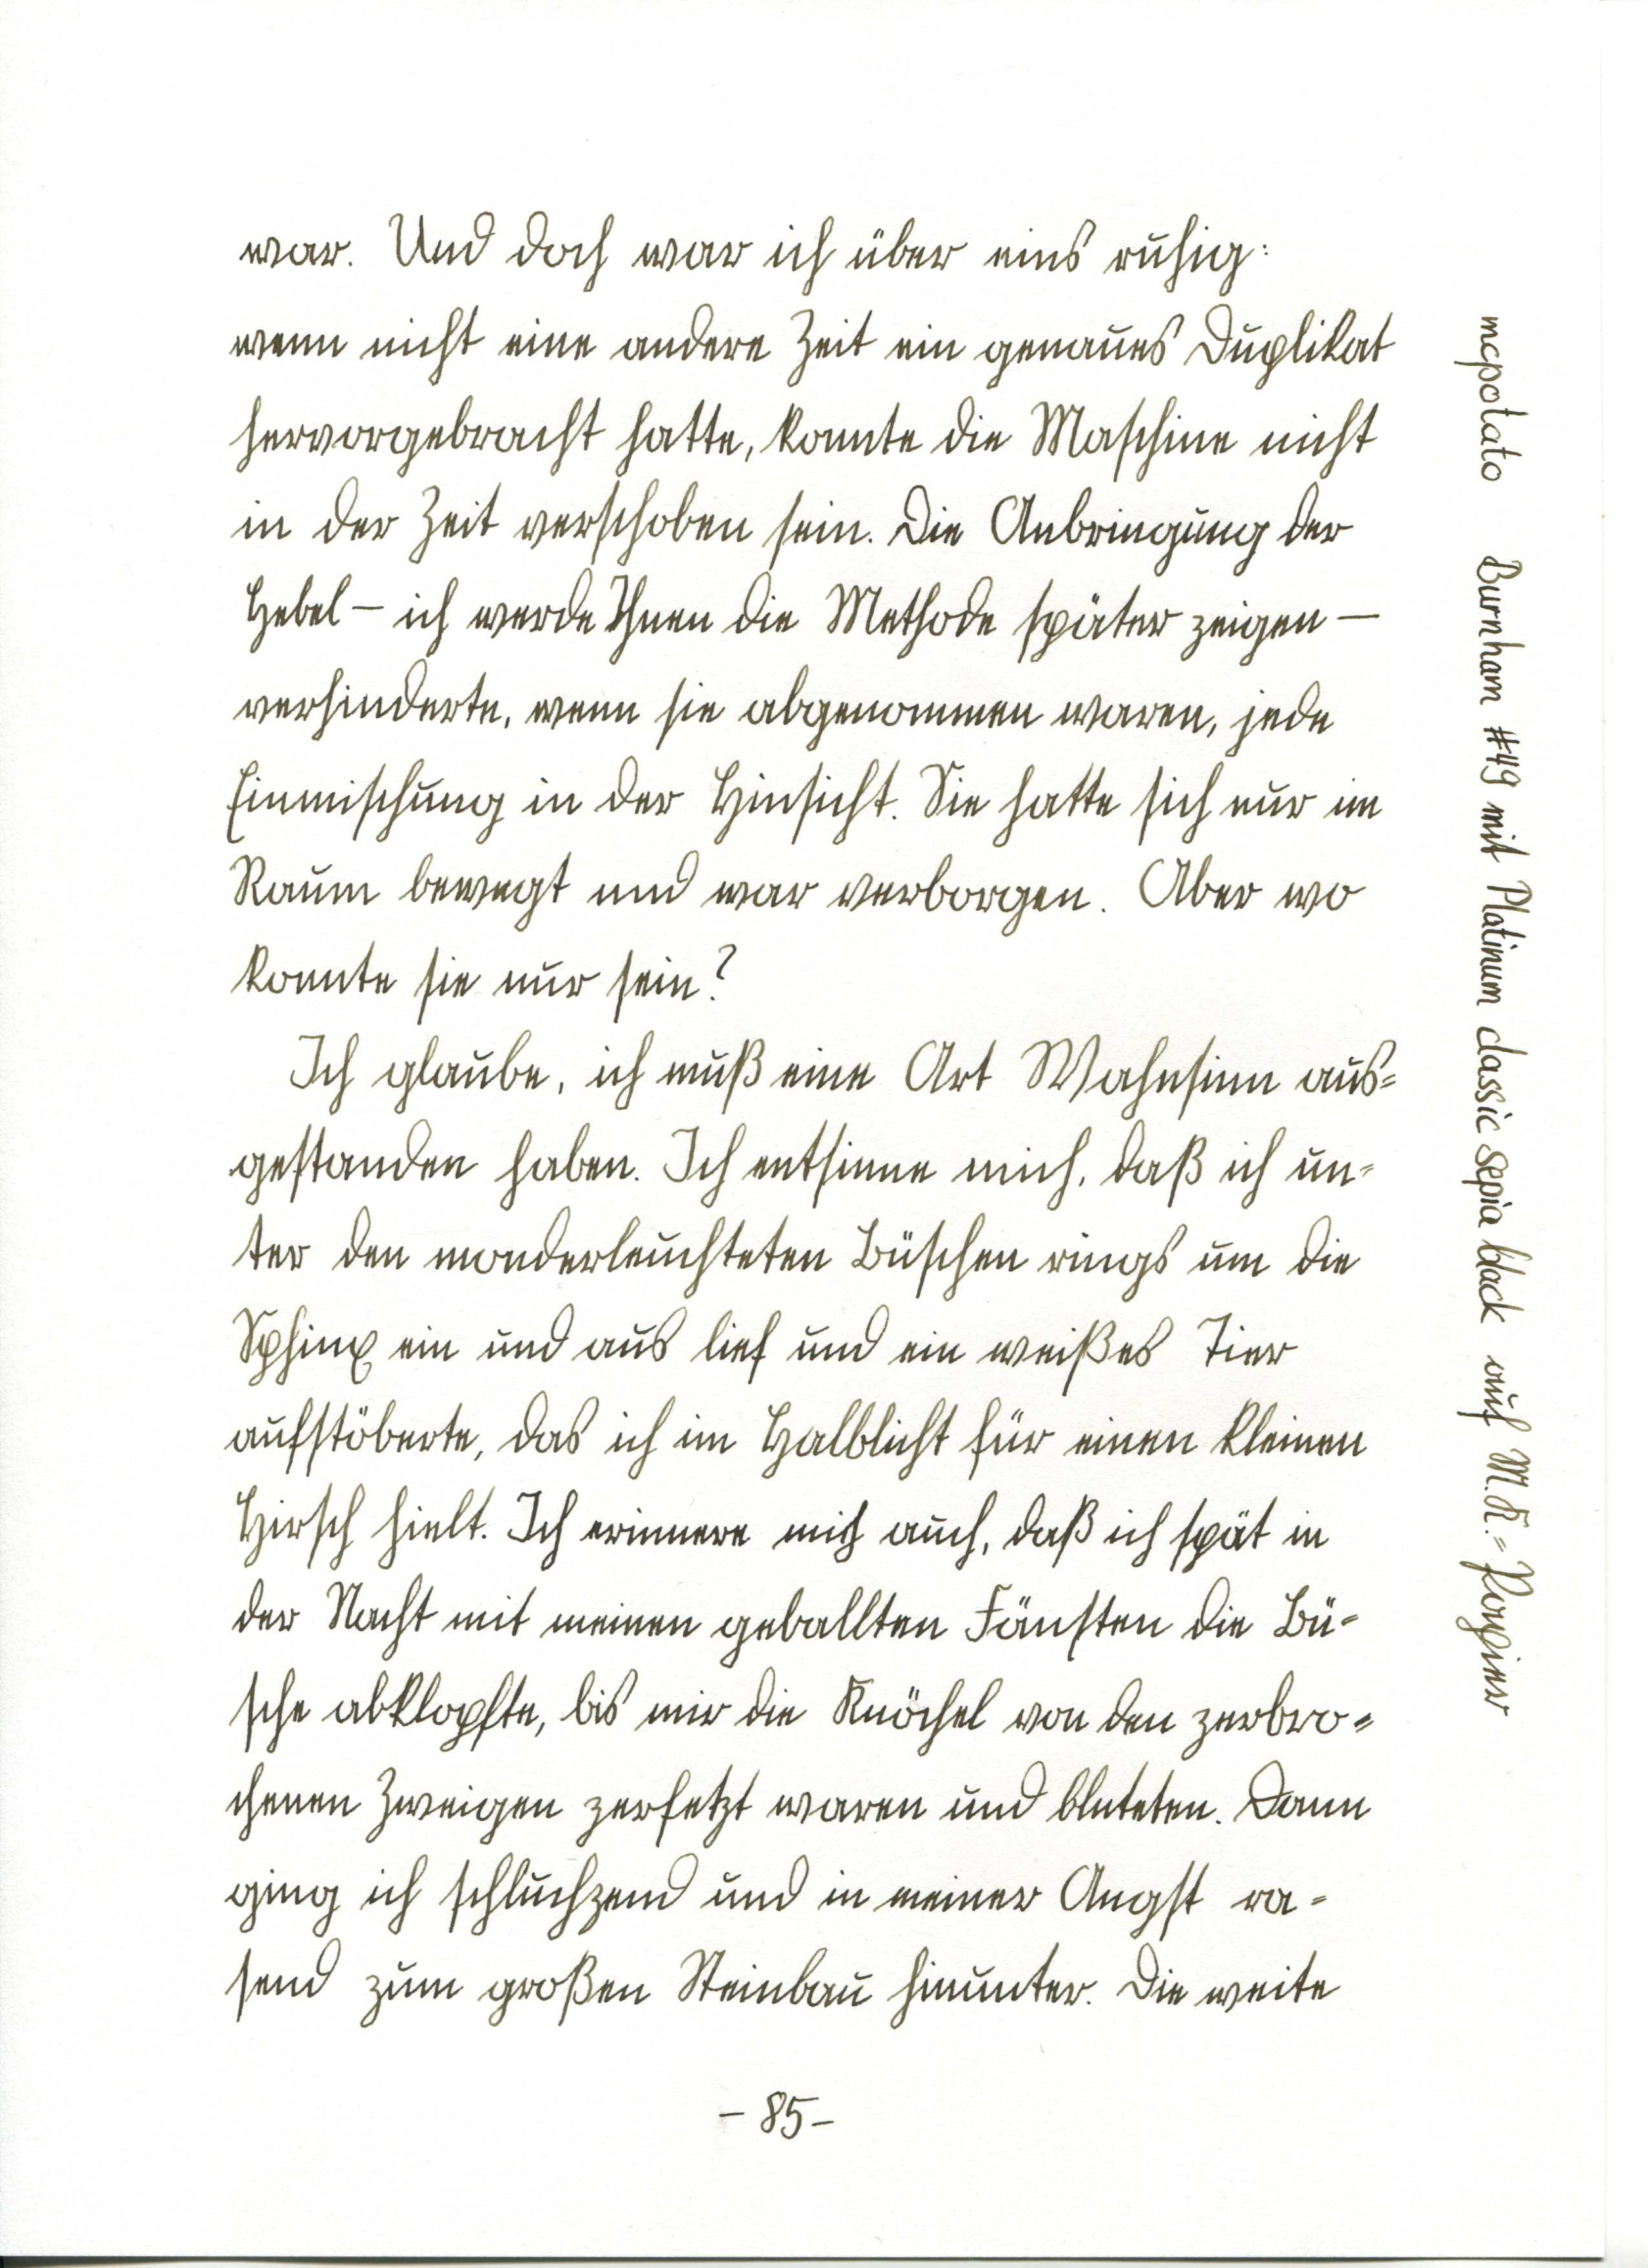 war. Und doch war ich über eins ruhig:
wenn nicht eine andere Zeit ein genaues Duplikat
hervorgebracht hatte, konnte die Maschine nicht
in der Zeit verschoben sein. Die Anbringung der
Hebel – ich werde Ihnen die Methode später zeigen –
verhinderte, wenn sie abgenommen waren, jede
Einmischung in der Hinsicht. Sie hatte sich nur im
Raum bewegt und war verborgen. Aber wo
konnte sie nur sein?
Ich glaube, ich muß eine Art Wahnsinn aus=
gestanden haben. Ich entsinne mich, daß ich un=
ter den monderleuchteten Büschen rings um die
Sphinx ein und aus lief und ein weißes Tier
aufstöberte, das ich im Halblicht für einen kleinen
Hirsch hielt. Ich erinnere mich auch, daß ich spät in
der Nacht mit meinen geballten Fäusten die Bü=
sche abklopfte, bis mir die Knöchel von den zerbro=
chenen Zweigen zerfetzt waren und bluteten. Dann
ging ich schluchzend und in meiner Angst ra=
send zum großen Steinbau hinunter. Die weite
– 85 –
mcpotato Burnham #49 mit Platinum classic sepia black auf M.K.=Papier